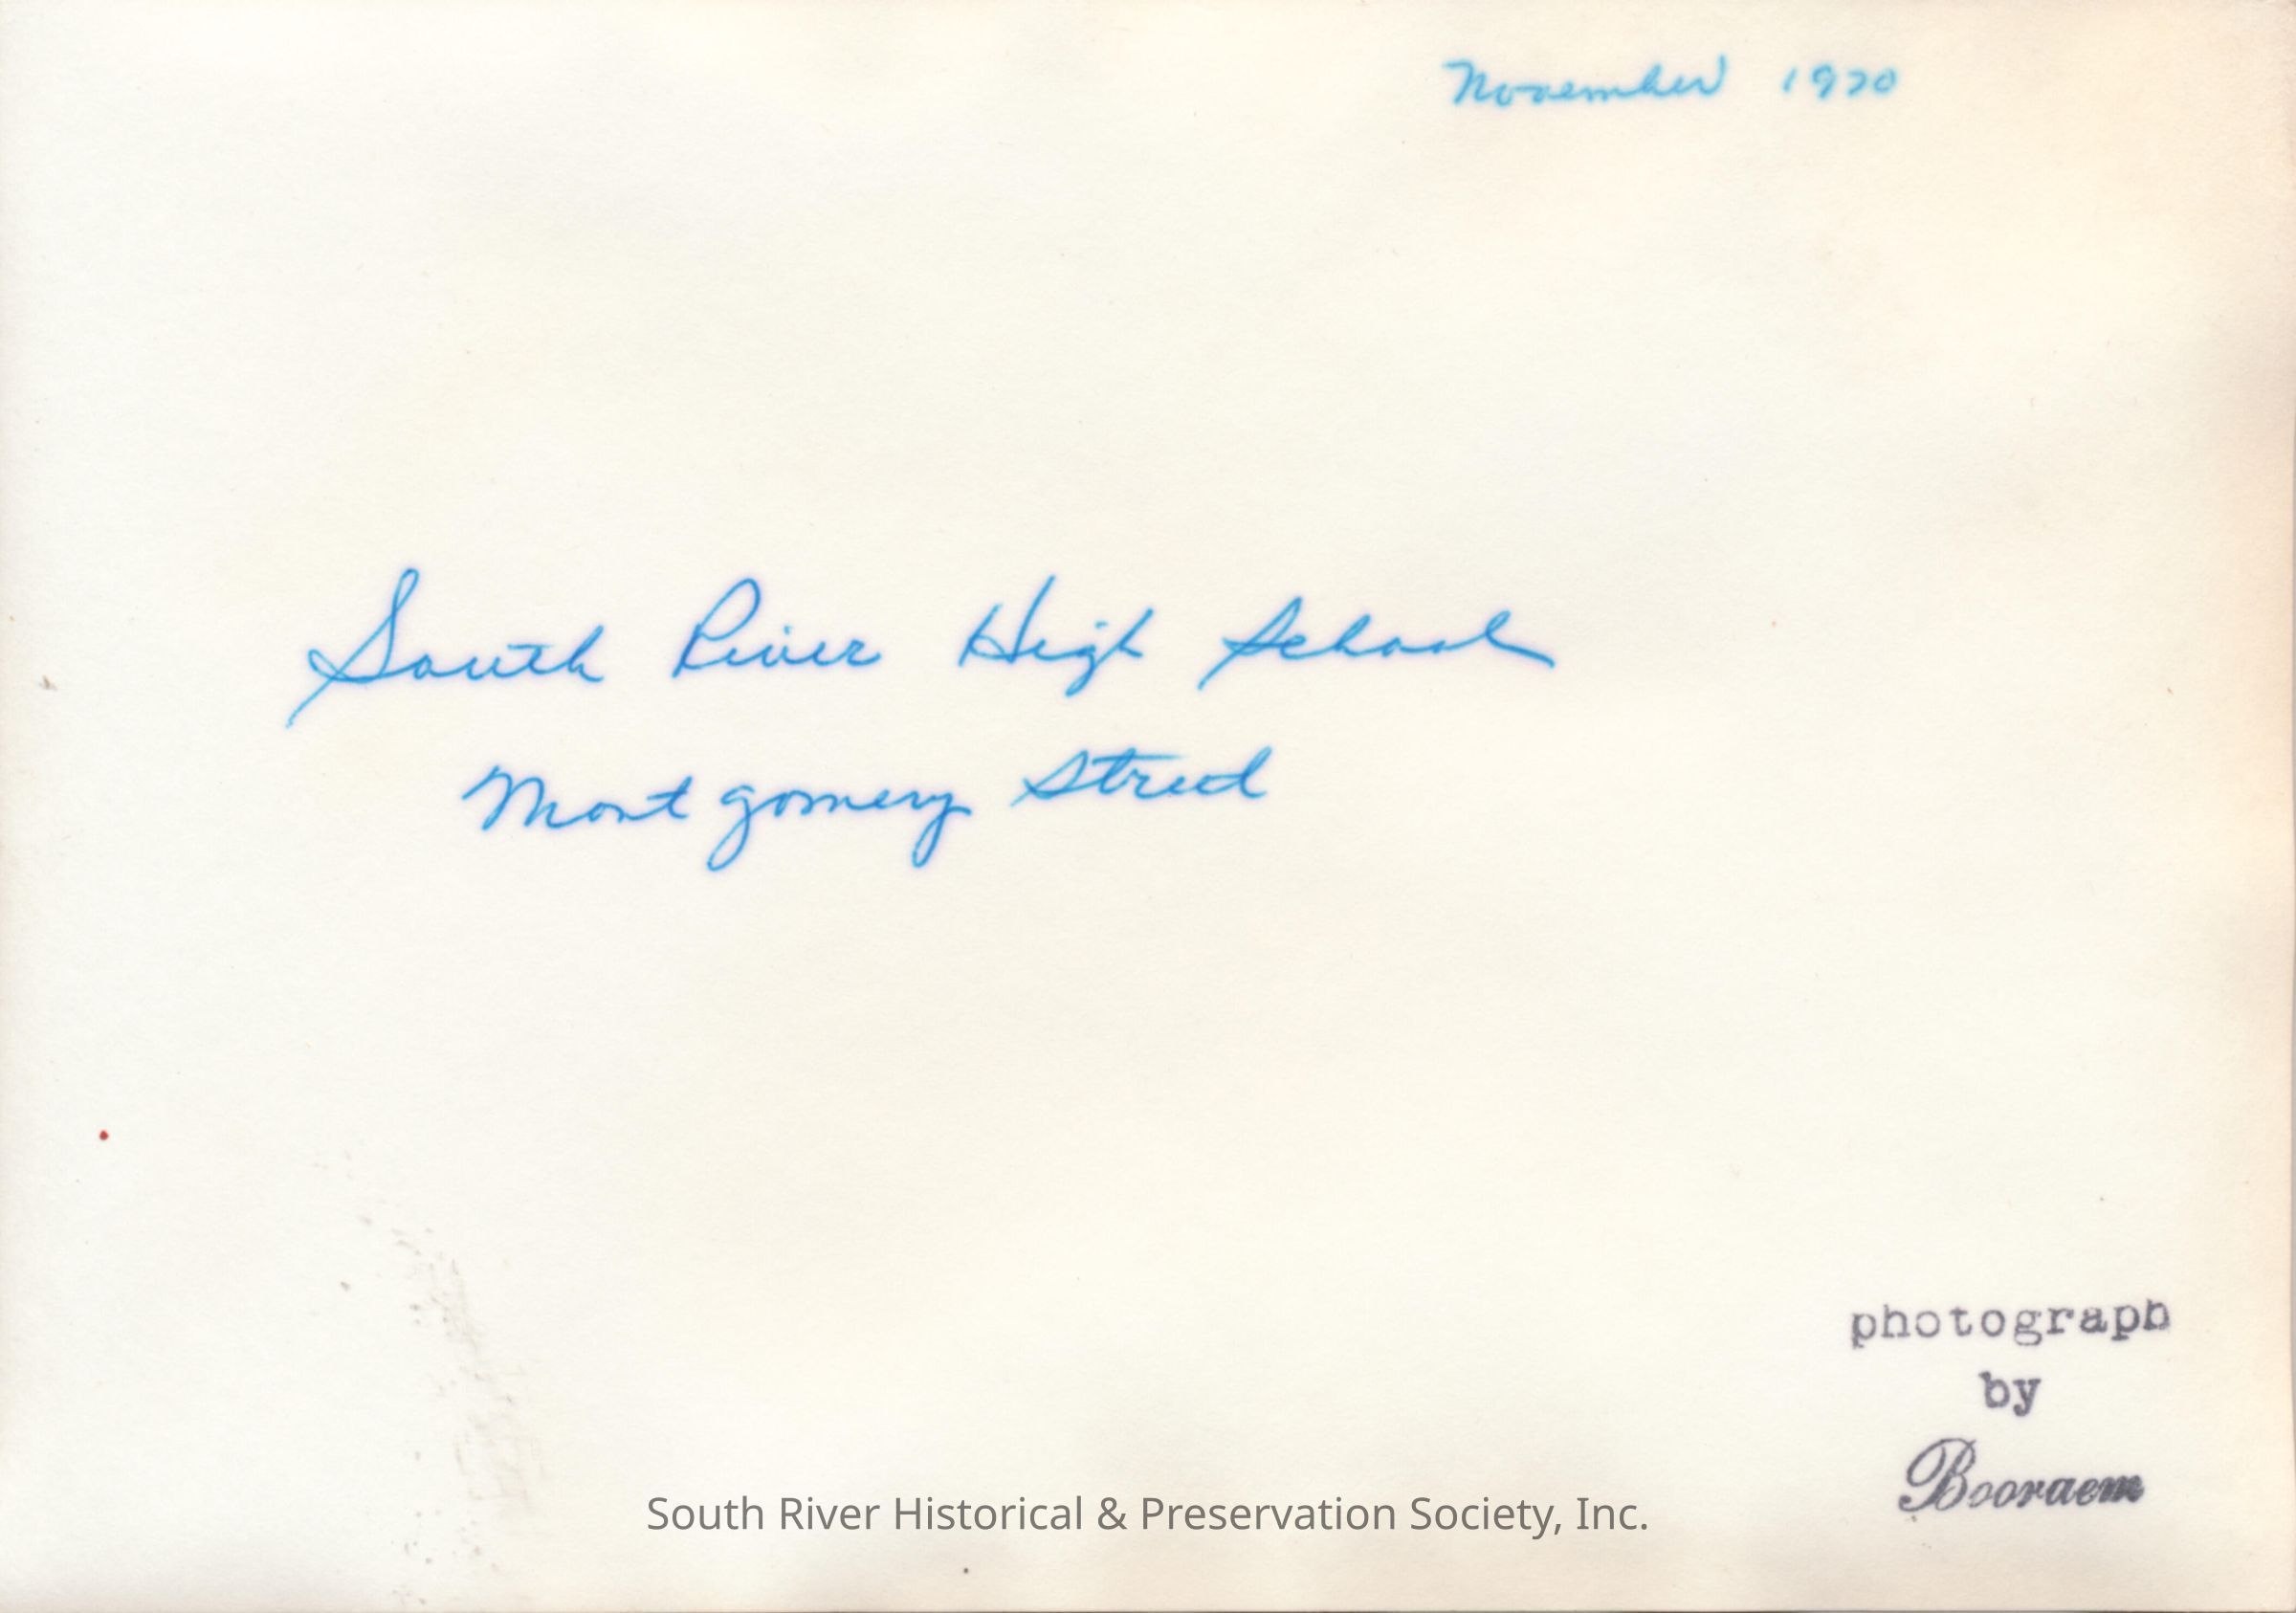 November 1970
South River High School
Montgomery Street
photograph
by
Booraem
South River Historical & Preservation Society, Inc.